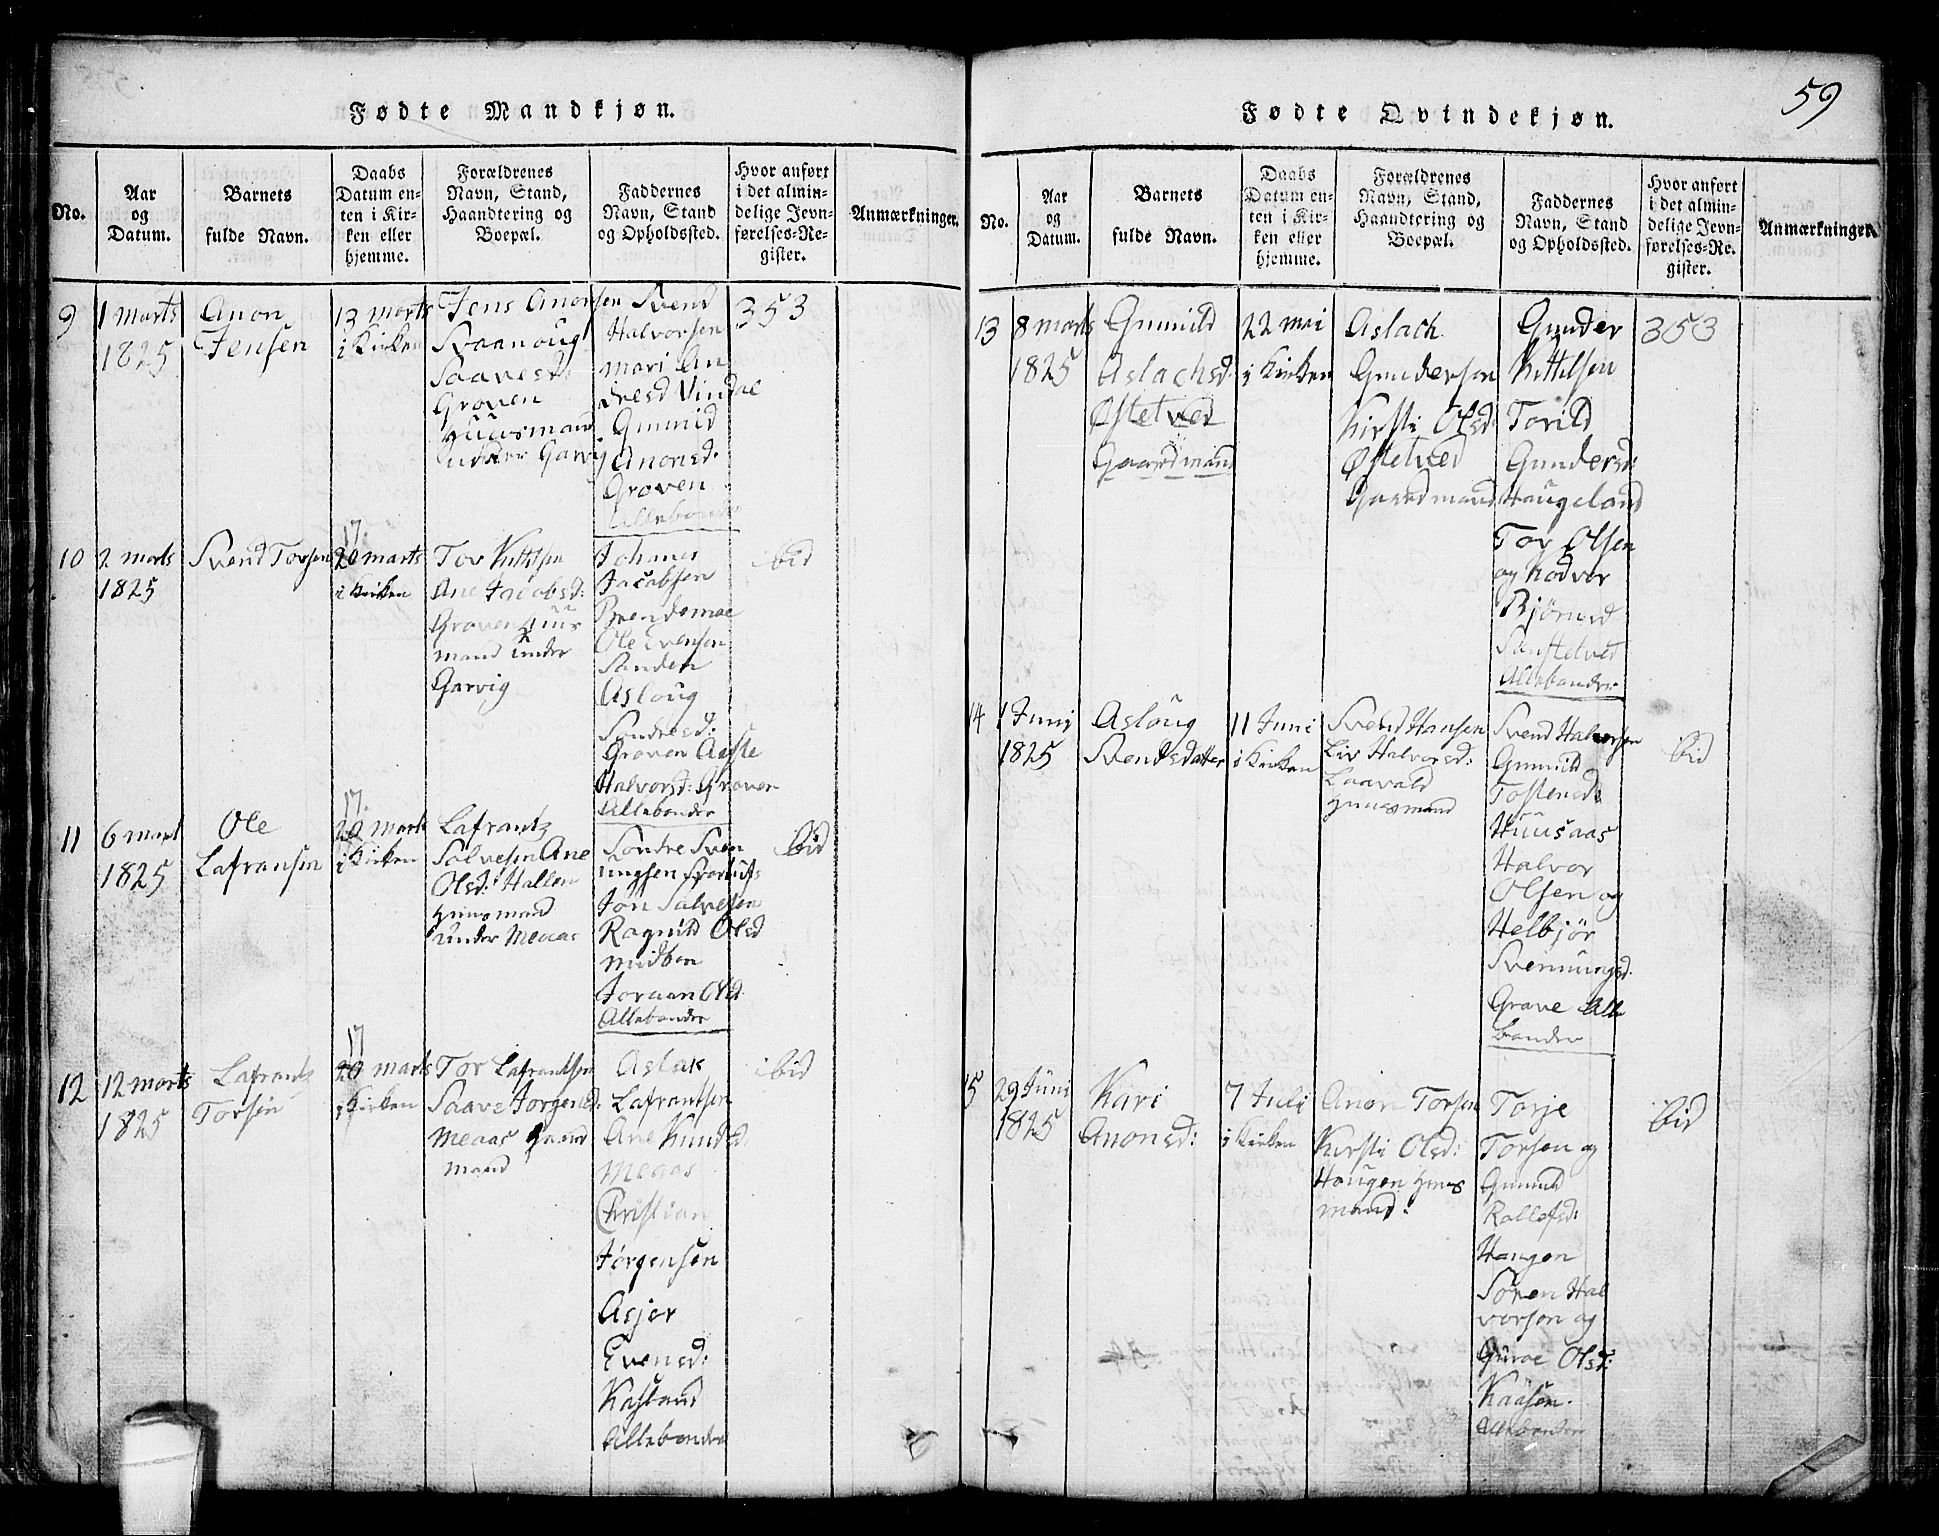 59
Fødte Mandkjøn.
No.
Aar
og
Datum.
Barnets
fulde Navn.
Daabs
Datum en-
ten i Kir-
ken eller
hjemme.
Forældrenes
Navn, Stand,
Haandtering og
Boepæl.
Faddernes
Navn, Stand
og Opholdssted.
Hvor anført
i det almin-
delige Jevn-
førelses-Re-
gister.
Anmærkninger.
9
1 Marts
1825
Anon
Jensen
13 marts
i Kirken
Jens Anonsen
Svanaug
Saavesd:
Groven
Huusmand
under Garvig
Svend
Halvorsen
Mari An
dresd Vindal
Gunnild
Anonsd:
Groven
Allebønder
353
10
2 marts
1825
Svend Torsen
17.
20 marts
i Kirken
Tov Kittilsen
Ane Jacobsd:
Groven Huus
mand under
Garvig
Johanes
Jacobsen
Brendemoe
Ole Evensen
Sanden
Asloug
Sondresd:
Groven Aaste
Halvorsd: Groven
Allebønder
ibid
11
6 mart
1825
Ole
Lafransen
17.
20 marts
i Kirken
Lafrantz
Solvesen Ane
Olsd: Hallen
Huusmand
under Meaas
Sondre Sven
ungsen
Jon Salvesen
Ragnild Olsd
Midboe
Joraan Olsd
Allebønder
ibid
12
12 marts
1825
Lafrantz
Torsen
17
20 marts
i Kirken
Tor Lafrantsen
Saave Jorgensd:
Meaas Gaard
mand
Aslak
Lafrantsen
Ane Knudsd:
Meaas
Christian
Jørgensen
Asjer
Evensd:
Kasland
Allebønder
ibid
Fødte Qvindekjøn.
No.
Aar
og
Datum.
Barnets
fulde Navn.
Daabs
Datum en-
ten i Kir-
ken eller
hjemme.
Forældrenes
Navn, Stand,
Haandtering og
Boepæl.
Faddernes
Navn, Stand
og Opholdssted.
Hvor anført
i det almin-
delige Jevn-
førelses-Re-
gister.
Anmærkninger.
13
8 marts
1825
Gunnild
Aslachsd:
Østetved
Gaardmand
22 mai
i Kirken
Aslach
Gundersen
Kirsti Olsd:
Østetved
Gaardmand
Gunder
Kittilsen
Torild
Gundersd:
Haugeland
Tov Olsen
og Kodvor
Bjørnsd
Sanstetved
Allebønder
353
14
1 Juni
1825
Asloug
Svendsdatter
11 Juni
i Kirken
Svend Hansen
Liv Halvorsd:
Laavald
Huusmand
Svend Halvorsen
Gunnild
Tostensd:
Huusaas
Halvor
Olsen og
Helbjør
Svennungsd:
Grave Alle
bønder
ibid
15
29 Juni
1825
Kari
Anonsd:
7 Juli
i Kirken
Anon Torsen
Kirsti Olsd:
Haugen Huus
mand.
Torje
Torsen og
Gunnild
Rollefsd:
Haugen
Søren Hal
vorsen og
Guroe Olsd:
Kaasen.
Allebønder
ibid